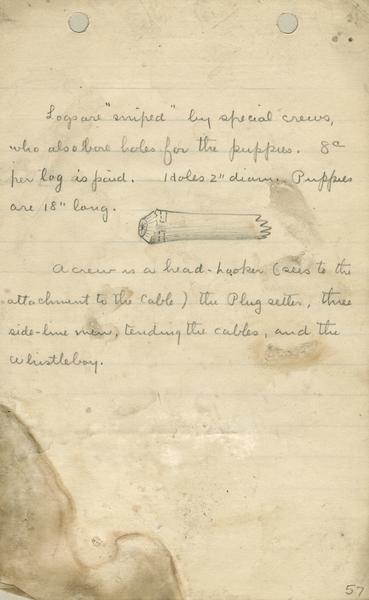 Logs are "sniped" by special crews,
who also bore holes for the puppies. 8¢
per log is paid. Holes 2" diam. Puppies
are 18" long.
A crew is a head-hooker (sees to the
attachment to the cable) the Plug setter, three
side-line men, tending the cables, and the
whistleboy.
57